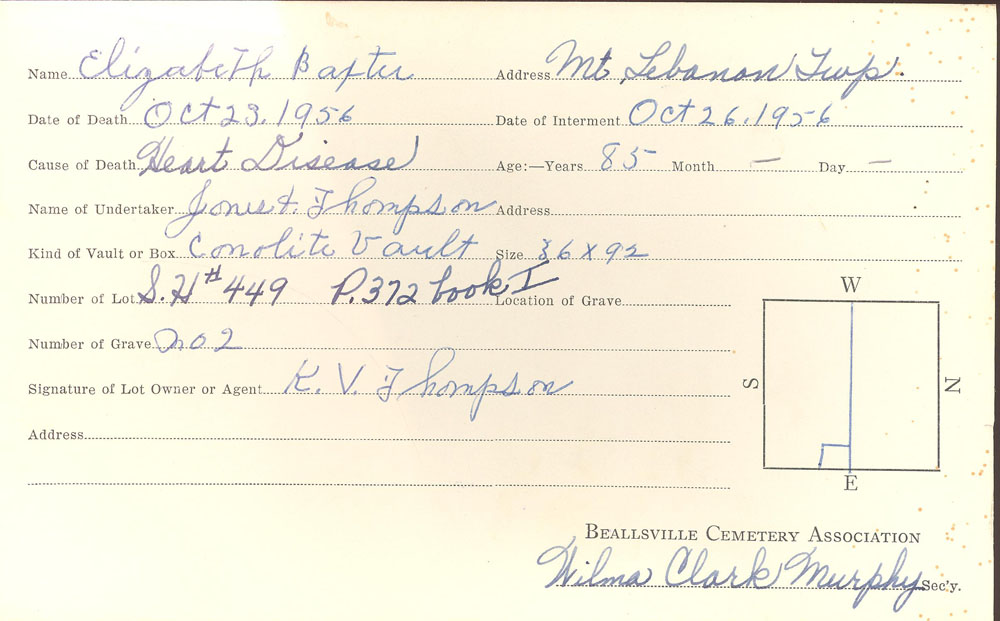 Name Elizabeth Baxter Address Mt. Lebanon Twp.
Date of Death Oct 23, 1956 Date of Interment Oct 26, 1956
Cause of Death Heart Disease Age:—Years 85 Month — Day —
Name of Undertaker Jones & Thompson Address
Kind of Vault or Box Conolite Vault Size 36 x 92
Number of Lot S.H #449 P.372 book I Location of Grave
Number of Grave no 2
Signature of Lot Owner or Agent K. V. Thompson
Address
W
S
N
E
BEALLSVILLE CEMETERY ASSOCIATION
Wilma Clark Murphy Sec'y.